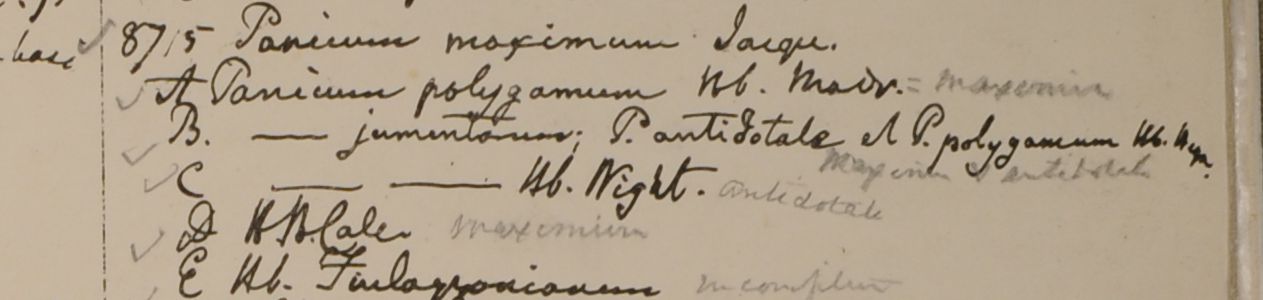 8715 Panicum maximum Jacqu.
A Panicum polygamum Hb. Madr. = maximum
B. — jumentorum; P. antidotale et P. polygamum Hb. Heyn.
maximum & antidotale
C — — Hb. Wight. antidotale
D H.B. Calc. maximum
E Hb. Finlaysonianum